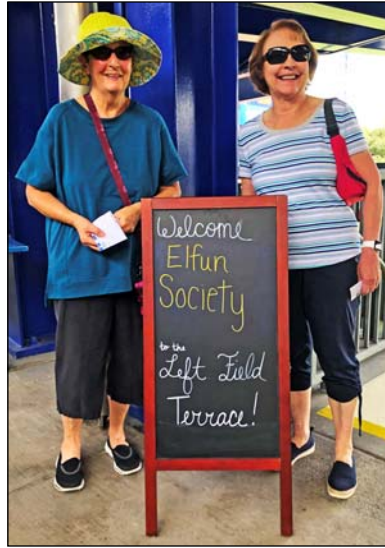 Welcome
Elfun
Society
to the
Left Field
Terrace!